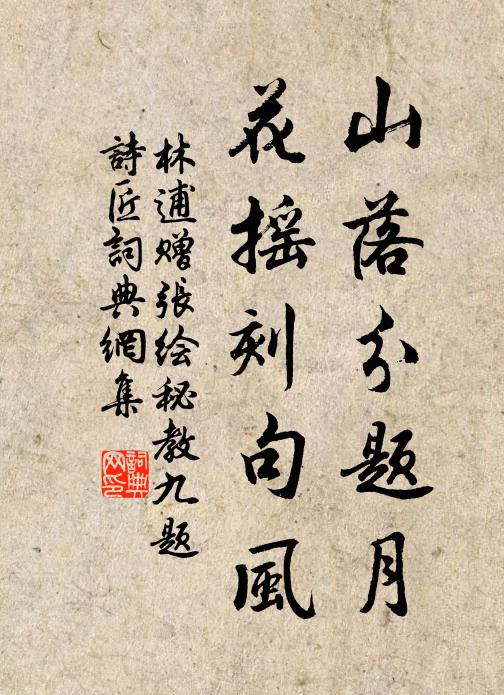 山落分题月
花摇刻句風
林逋赠張绘秘教九题
詩匠詞典網集
詞典网印